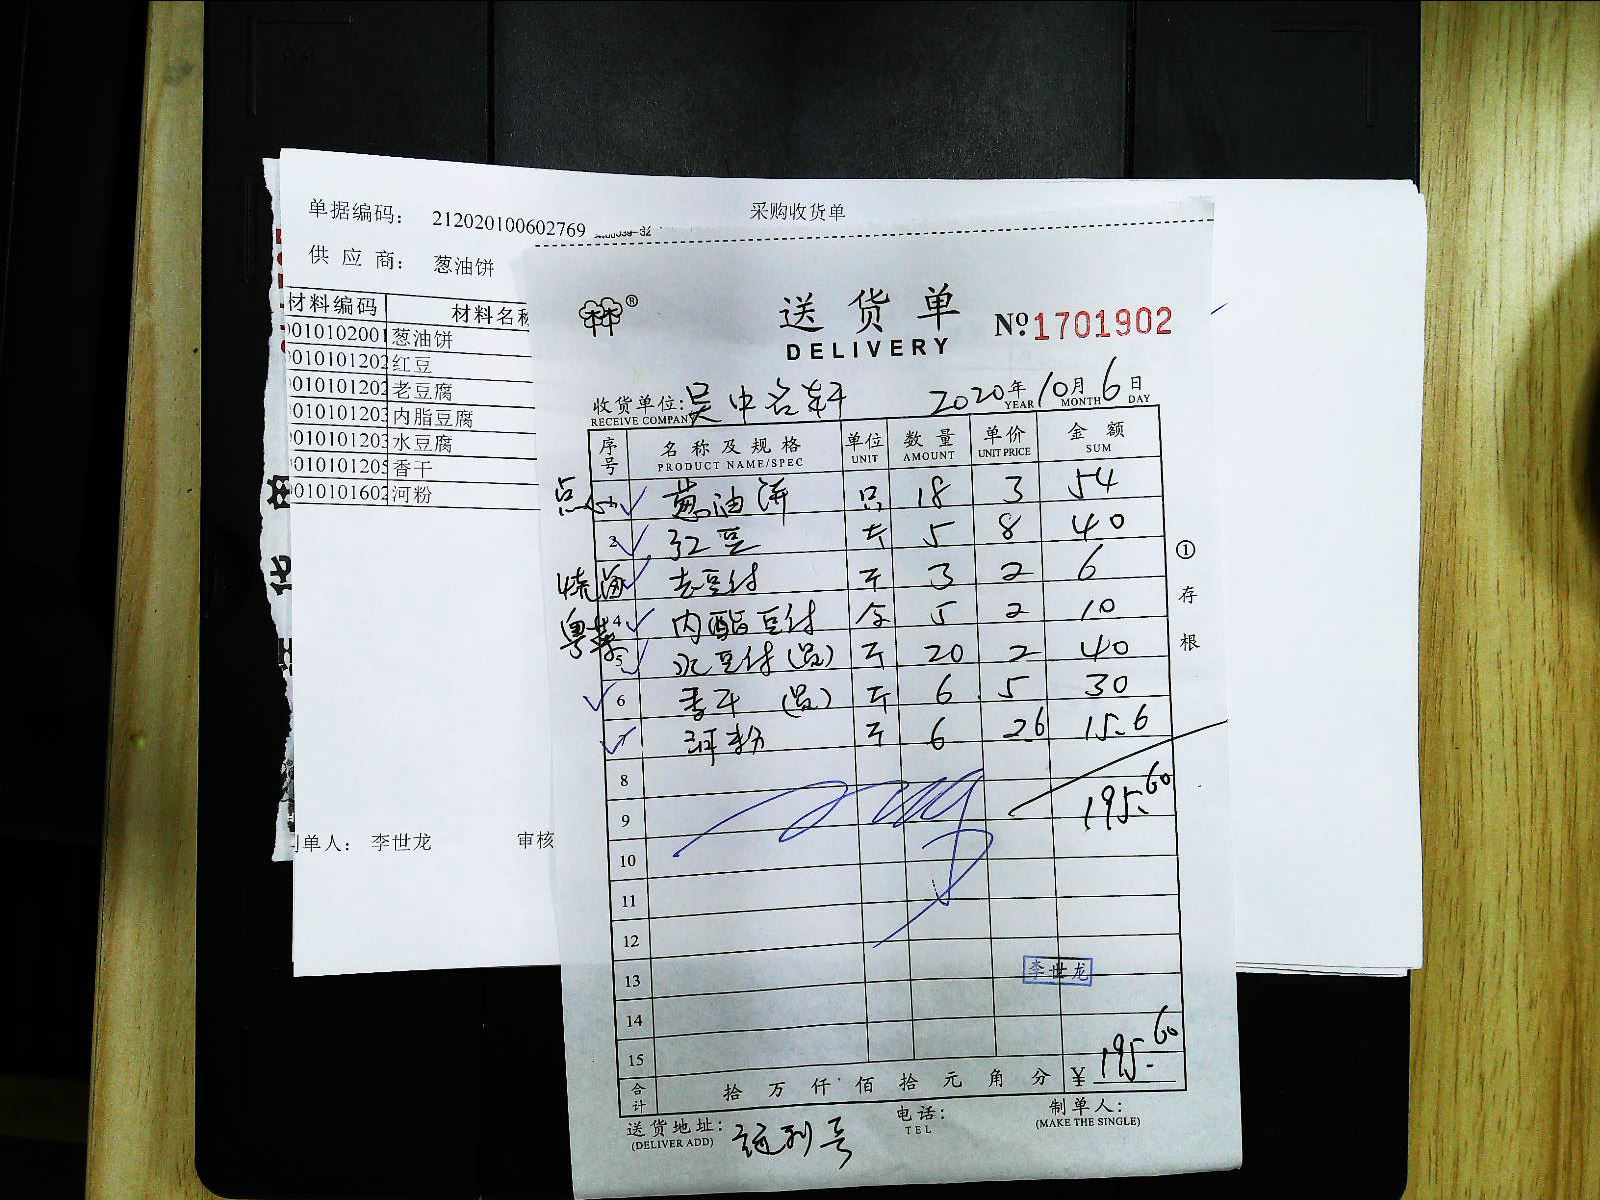 单据编码： 212020100602769
采购收货单
供 应 商： 葱油饼
材料编码 材料名称
0010102001 葱油饼
0010101202 红豆
0010101202 老豆腐
0010101203 内脂豆腐
0010101203 水豆腐
0010101205 香干
0010101602 河粉
制单人： 李世龙 审核
送货单
DELIVERY
№ 1701902
收货单位: 吴中名轩 2020年10月6日
RECEIVE COMPANY YEAR MONTH DAY
序号 名称及规格 单位 数量 单价 金额
PRODUCT NAME/SPEC UNIT AMOUNT UNIT PRICE SUM
点心 1 葱油饼 只 18 3 54
2 红豆 斤 5 8 40
烧海 老豆付 斤 3 2 6
粤菜 4 内酯豆付 合 5 2 10
5 水豆付 (员) 斤 20 2 40
6 香干 (员) 斤 6 5 30
7 河粉 斤 6 2.6 15.6
8
9 195.60
10
11
12
13 李世龙
14
15
合计 拾 万 仟 佰 拾 元 角 分 ¥ 195.60
送货地址: 电话: 制单人:
(DELIVER ADD) TEL (MAKE THE SINGLE)
① 存根